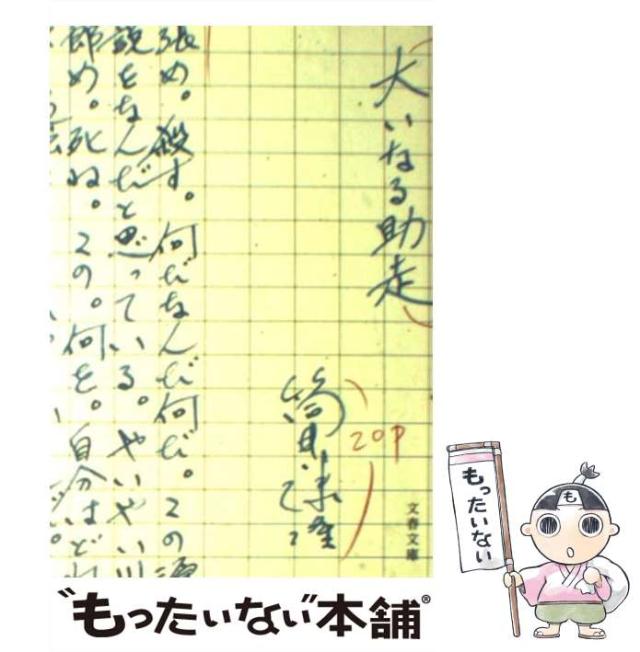 大いなる助走
筒井康隆
20P
文春文庫
張め。殺す。何だなんだ何だ。この
説をなんだと思っている。やいやい
郎め。死ね。この。何を。自分はど
もったいない
も
"もったいない"本舗®